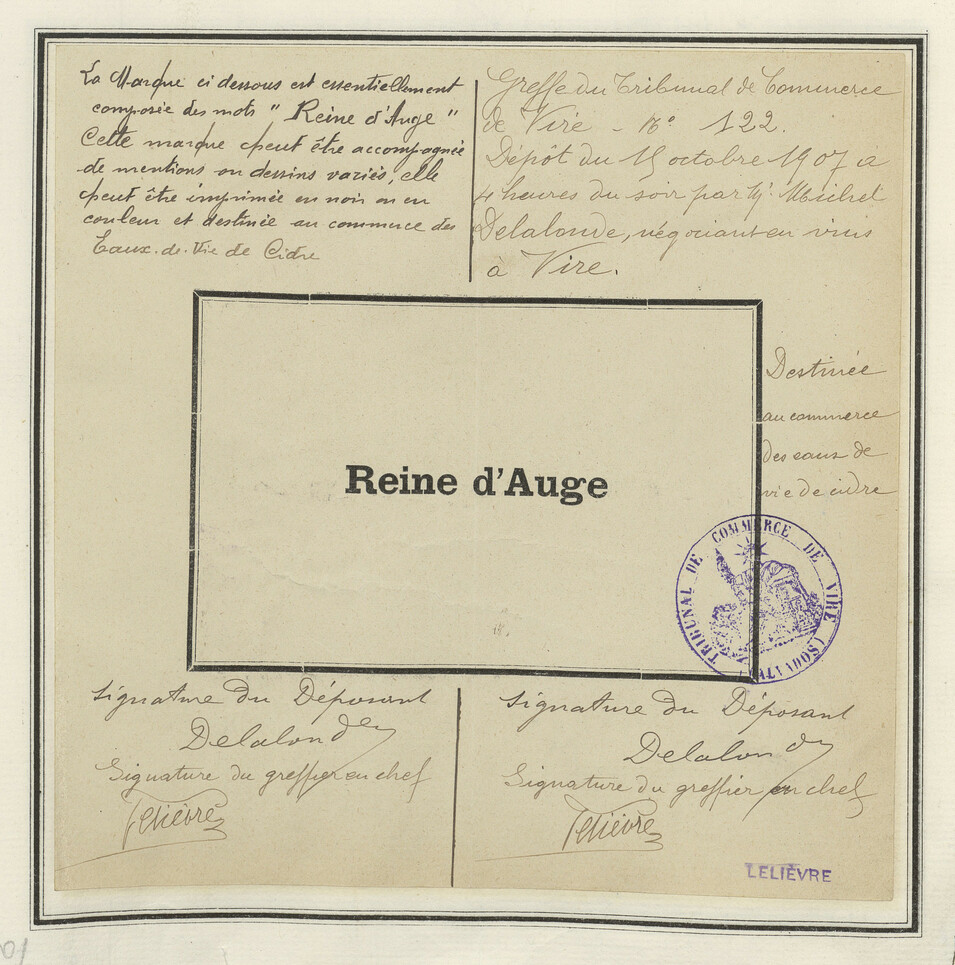 La Marque ci dessous est essentiellement
composée des mots " Reine d'Auge "
Cette marque peut être accompagnée
de mentions ou dessins variés, elle
peut être imprimée en noir ou en
couleur et destinée au commerce des
Eaux-de-Vie de Cidre
Greffe du Tribunal de Commerce
de Vire - No 122.
Dépôt du 15 octobre 1907 à
4 heures du soir par M. Michel
Delalonde, négociant en vins
à Vire.
Destinée
au commerce
des eaux de
vie de cidre
Reine d'Auge
TRIBUNAL DE COMMERCE DE VIRE (CALVADOS)
Signature du Déposant
Delalonde
Signature du greffier en chef
Lelièvre
Signature du Déposant
Delalonde
Signature du greffier en chef
Lelièvre
LELIÈVRE